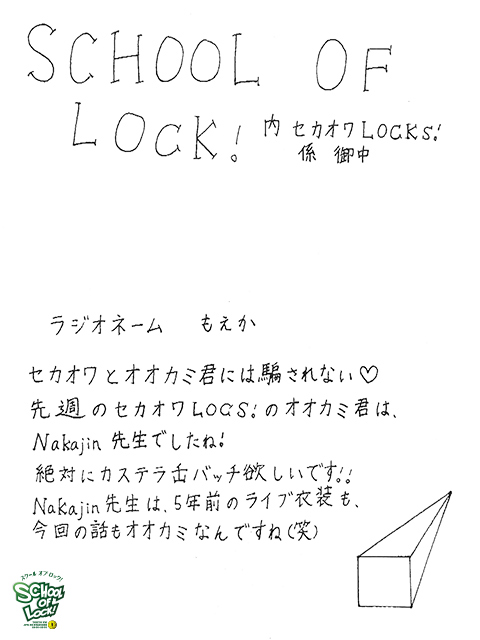 SCHOOL OF
LOCK! 内 セカオワLOCKS!
係 御中
ラジオネーム もえか
セカオワとオオカミ君には騙されない♡
先週のセカオワLOCS!のオオカミ君は、
Nakajin 先生でしたね!
絶対にカステラ缶バッチ欲しいです!!
Nakajin先生は、5年前のライブ衣装も、
今回の話もオオカミなんですね(笑)
スクール オブ ロック!
SCHOOL
OF
LOCK!